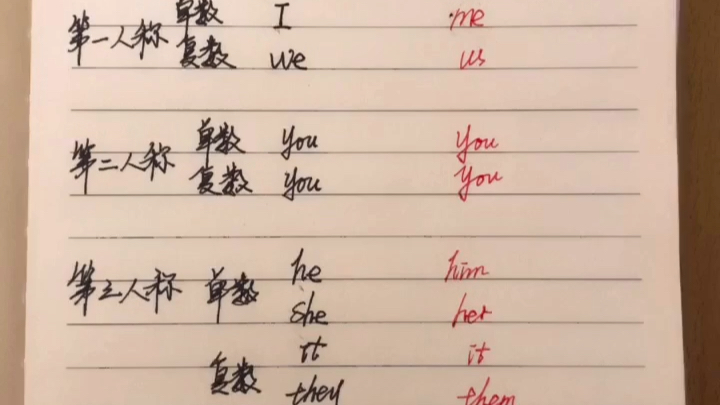 第一人称 单数 I me
复数 we us
第二人称 单数 you you
复数 you you
第三人称 单数 he him
she her
it it
复数 they them